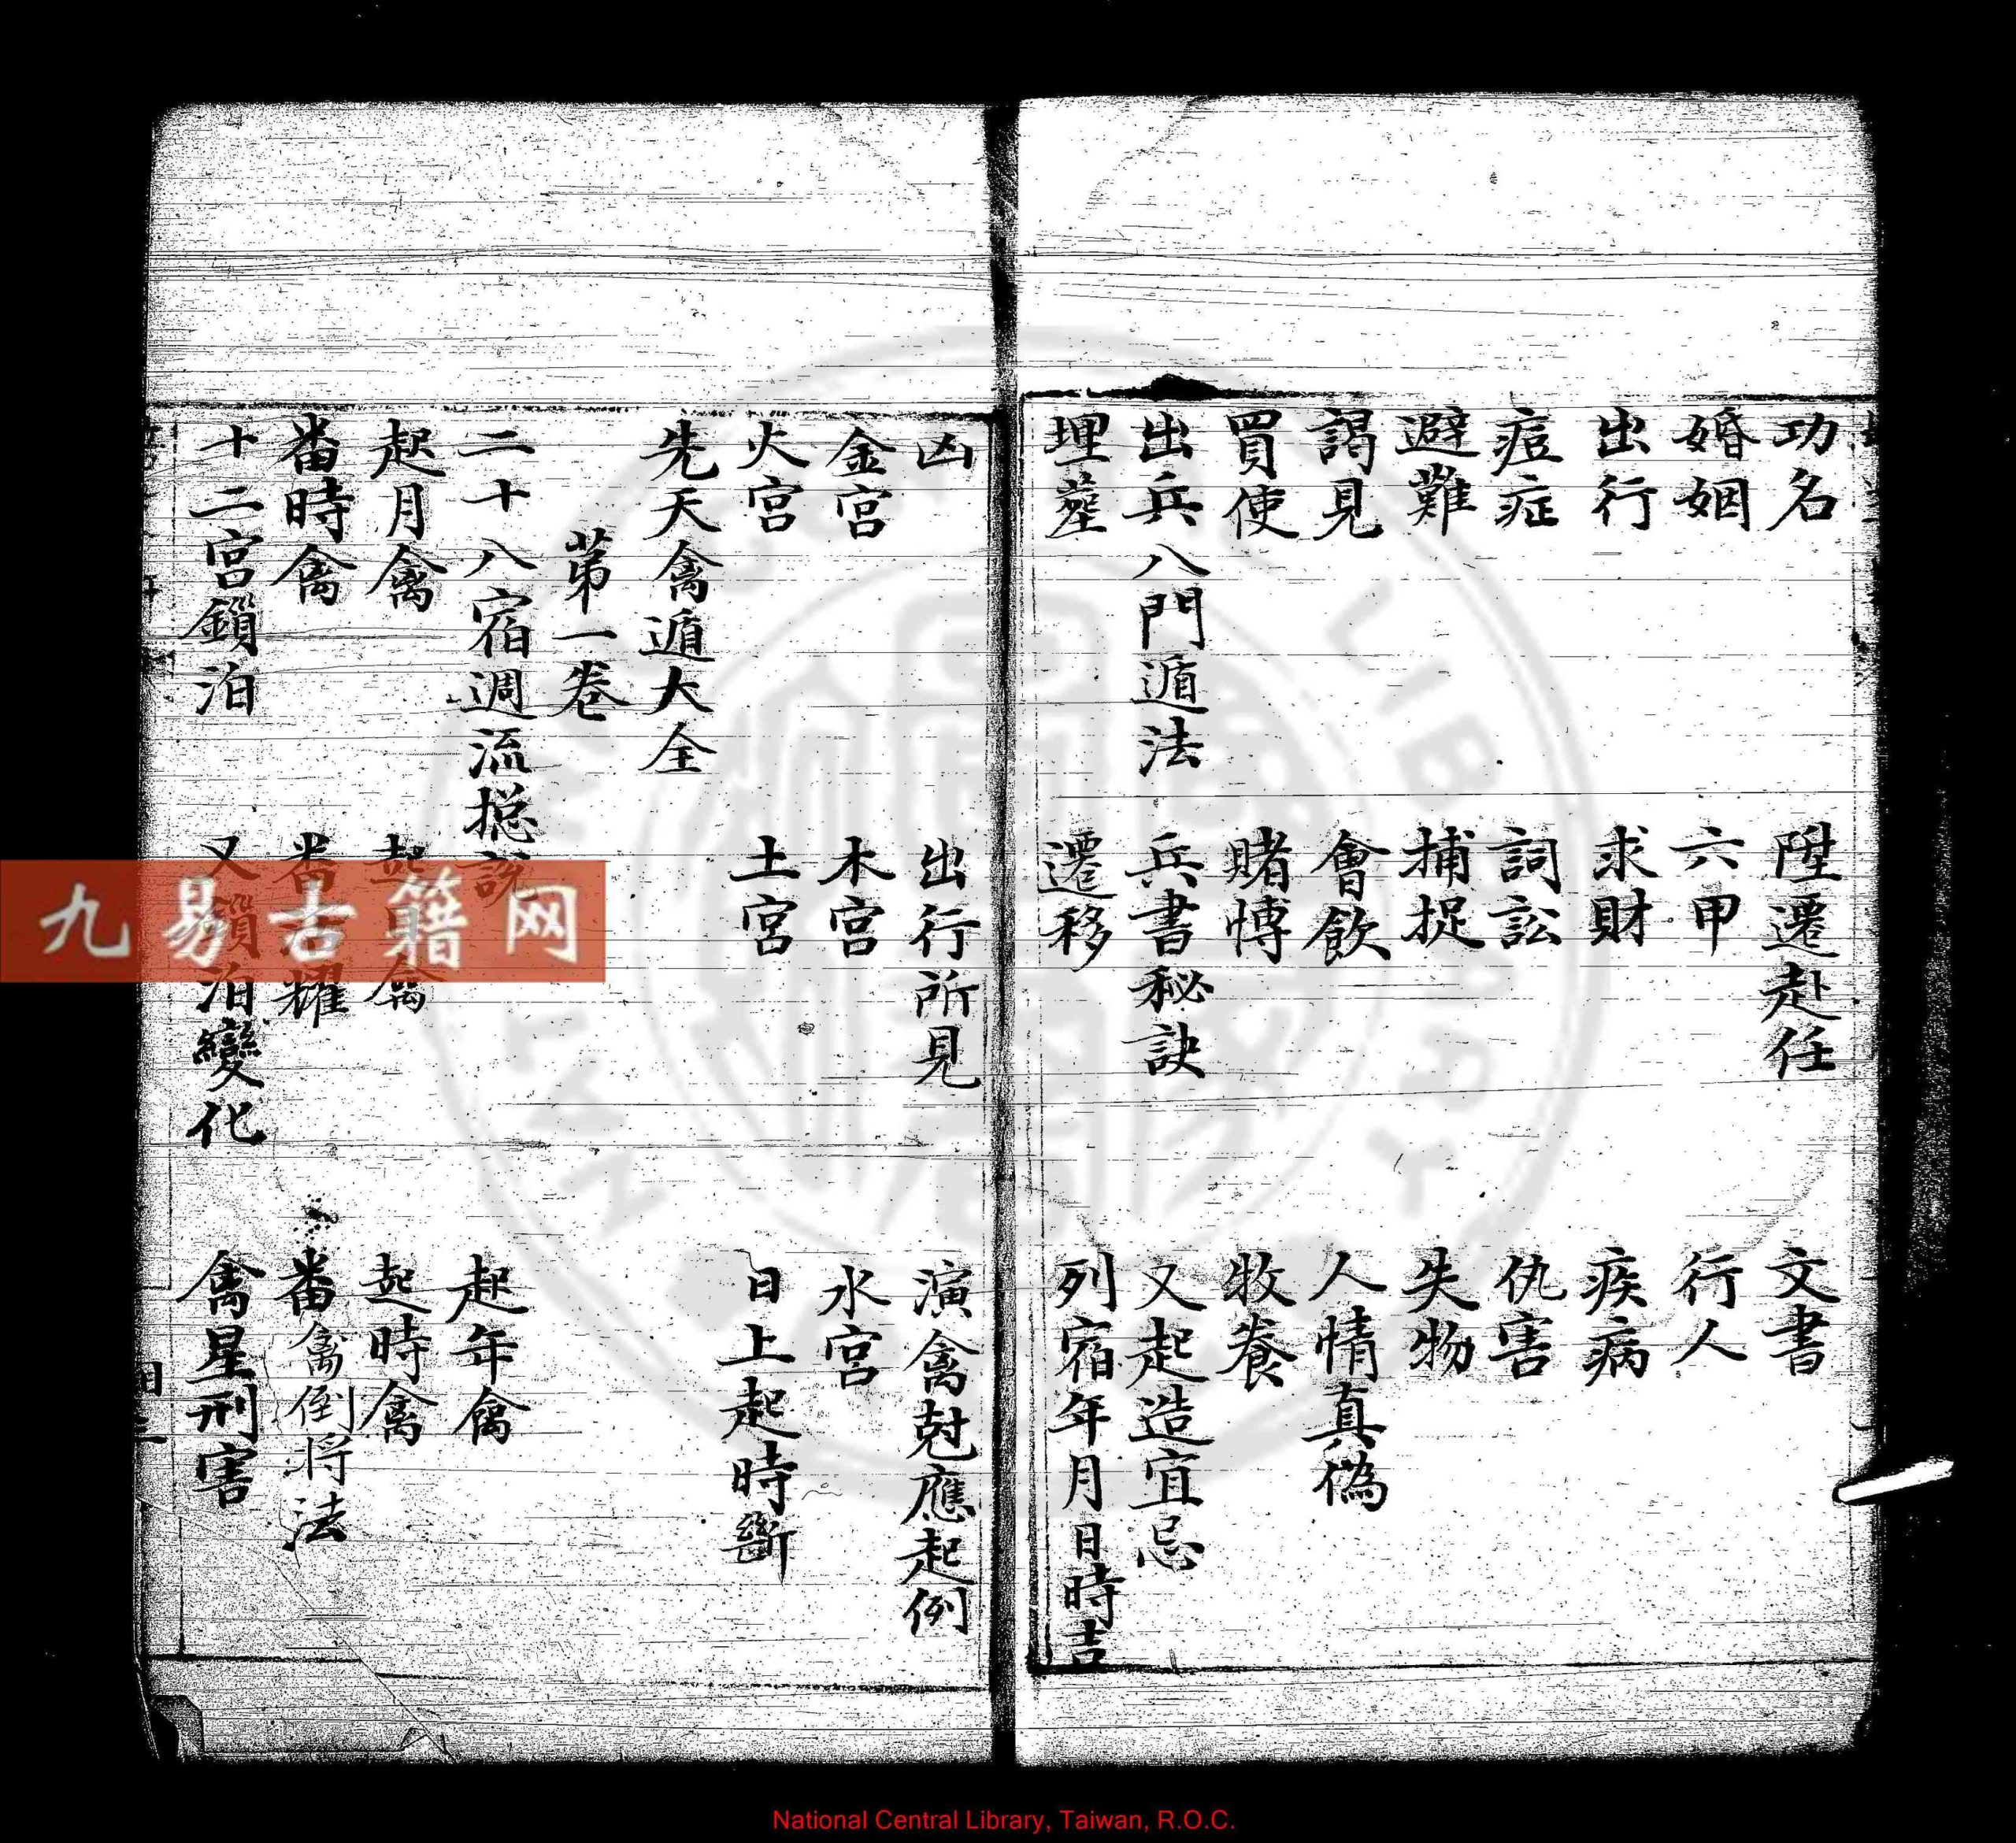 功名 陞遷赴任 文書
婚姻 六甲 行人
出行 求財 疾病
痘症 詞訟 仇害
避難 捕捉 失物
謁見 會飲 人情真偽
買使 賭愽 牧養
出兵八門遁法 兵書秘訣 又起造宜忌
埋塟 遷移 列宿年月日時吉
凶 出行所見 演禽尅應起例
金宮 木宮 水宮
火宮 土宮 日上起時斷
先天禽遁大全
苐一卷
二十八宿週流捴說 起年禽
起月禽 起日禽 起時禽
畨時禽 畨活耀 畨禽倒將法
十二宮鎻泊 又鎻泊變化 禽星刑害
九易古籍网
National Central Library, Taiwan, R.O.C.